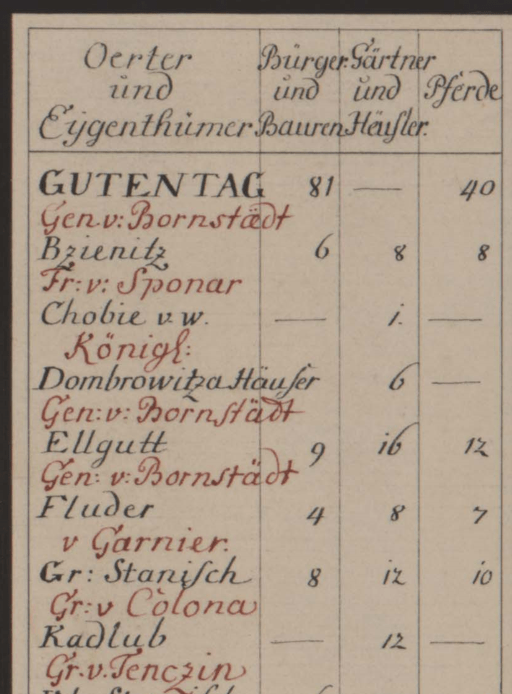 Oerter Bürger Gärtner
und und und Pferde
Eÿgenthümer Bauren Heüſler.
GUTENTAG 81 — 40
Gen. v: Bornstädt
Bzienitz 6 8 8
Fr: v: Sponar
Chobie v. w. — 1. —
Königl:
Dombrowitza Häuſer 6 —
Gen: v: Bornſtädt
Ellgutt 9 16 12
Gen: v: Bornſtädt
Fluder 4 8 7
v Garnier.
Gr: Staniſch 8 12 10
Gr: v Colona
Kadlub — 12 —
Gr. v. Tenczin